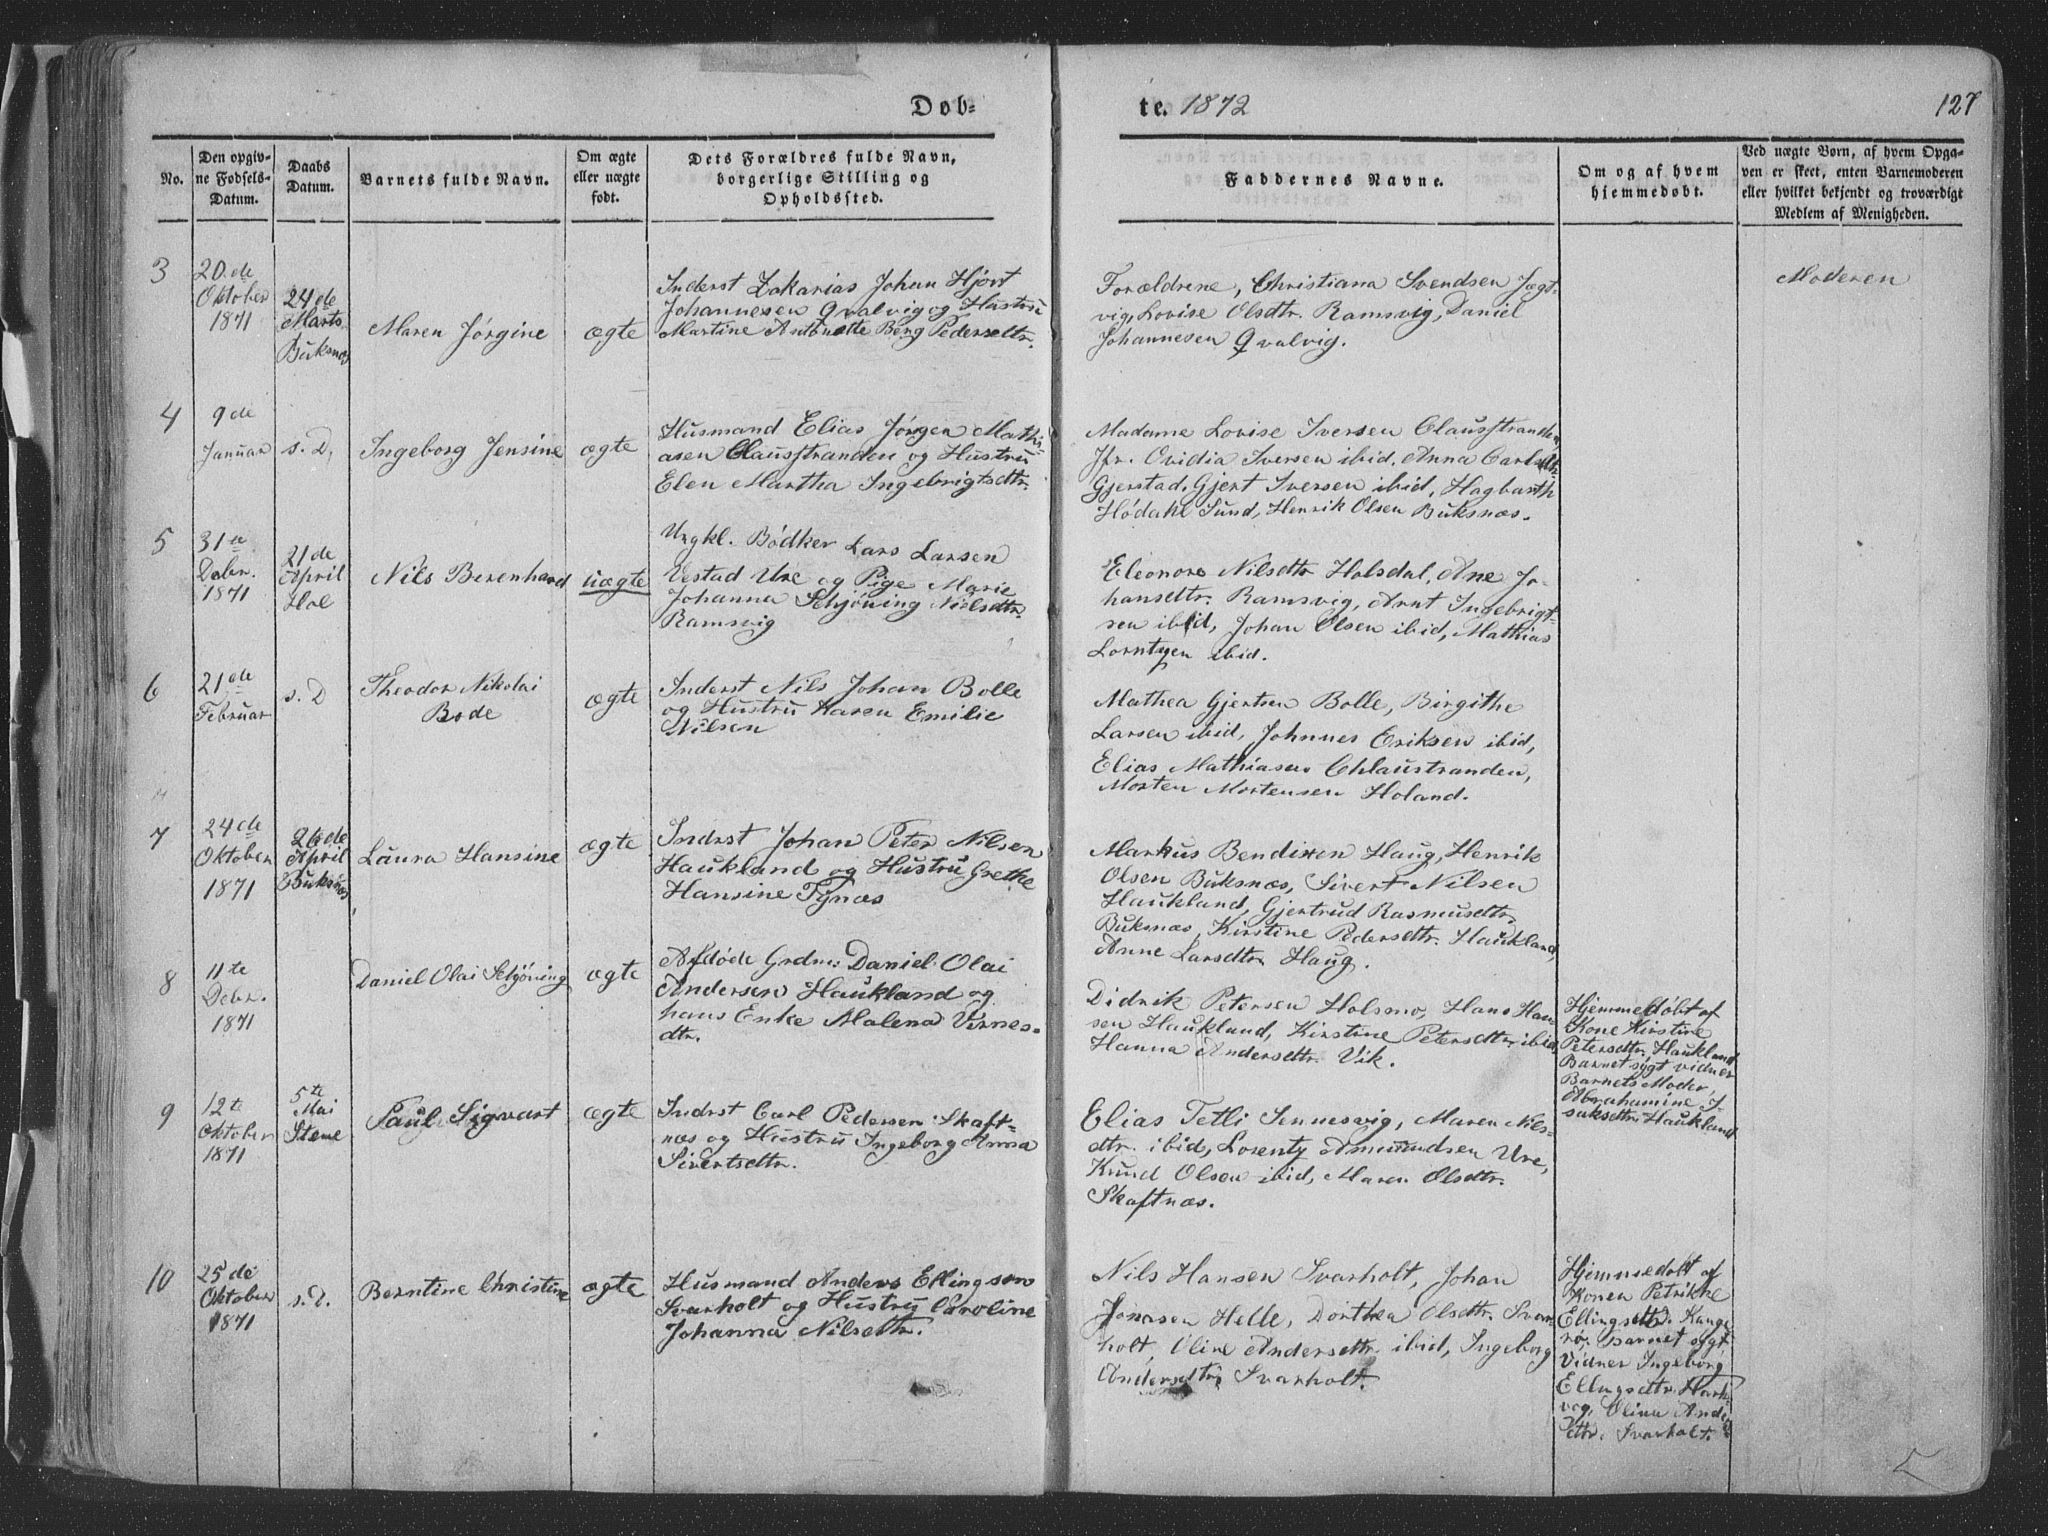 Døb-
te. 1872
127
No.
Den opgiv-
ne Fødsels-
Datum.
Daabs
Datum.
Barnets fulde Navn.
Om ægte
eller uægte
født.
Dets Forældres fulde Navn,
borgerlige Stilling og
Opholdssted.
Faddernes Navne.
Om og af hvem
hjemmedøbt.
Ved uægte Børn, af hvem Opga-
ven er skeet, enten Barnemoderen
eller hvilket bekjendt og troværdigt
Medlem af Menigheden.
3
20de
Oktober
1871
24de
Marts
Buksnæs
Maren Jørgine
ægte
Inderst Zakarias Johan Hjort
Johannesen Qvalvig og Hustru
Martine Antonette Berg Pedersdtr.
Forældrene, Christiana Svendsen Jægt-
vig, Lovise Olsdtr. Ramsvig, Daniel
Johannesen Qvalvig.
Moderen
4
9de
Januar
s. D.
Ingeborg Jensine
ægte
Husmand Elias Jørgen Mathi-
asen Clausstranden og Hustru
Elen Martha Ingebrigtsdtr.
Madame Lovise Iversen Clausstranden
Jfr. Ovidia Iversen ibid, Anna Carlsdtr.
Gjerstad, Gjert Iversen ibid, Hagbarth
Hødahl Sund, Henrik Olsen Buksnæs.
5
31te
Debr.
1871
21de
April
Hol
Nils Berenhard
uægte
Ungkl. Bødker Lars Larsen
Vestad Ure og Pige Marie
Johanna Schjøning Nielsdtr.
Ramsvig
Eleonore Nilsdtr Holsdal, Ane Jo-
hansdtr. Ramsvig, Arnt Ingebrigt-
sen ibid, Johan Olsen ibid, Mathias
Lorntzen ibid.
6
21de
Februar
s. D
Theodor Nikolai
Bode
ægte
Inderst Nils Johan Bolle
og Hustru Karen Emilie
Nilsen
Mathea Gjertsen Bolle, Birgithe
Larsen ibid, Johnnes Eriksen ibid,
Elias Mathiasen Chlaustranden,
Morten Mortensen Holand.
7
24de
Oktober
1871
26de
April
Buksnæs
Laura Hansine
ægte
Indrst Johan Peter Nilsen
Haukland og Hustru Grethe
Hansine Tynæs
Markus Bendixen Haug, Henrik
Olsen Buksnæs, Sivert Nilsen
Haukland, Gjertrud Rasmusdtr.
Buksnæs, Kirstine Pedersdtr. Haukland,
Anne Larsdtr. Haug.
8
11te
Debr.
1871
Daniel Olai Schjøning
ægte
Afdøde Grdm: Daniel Olai
Andersen Haukland og
hans Enke Malena
dtr.
Didrik Petersen Holsmo, Hans Han-
sen Haukland, Kirstine Petersdtr. ibid,
Hanna Andersdtr. Vik.
Hjemmedøbt af
Kone Kirstine
Petersdtr. Haukland
Barnet sygt vidner
Barnets Moder,
Abrahamine I-
saksdtr. Haukland
9
12te
Oktober
1871
5te
Mai
Stene
Paul Sigvart
ægte
Indrst Carl Pedersen Skaft-
næs og Hustru Ingeborg Anna
Sivertsdtr.
Elias Tetli Sennesvig, Maren Nils-
dtr. ibid, Lorentz Amundsen Ure,
Knud Olsen ibid, Maren Olsdtr.
Skaftnæs.
10
25de
Oktober
1871
s. D.
Berntine Christine
ægte
Husmand Anders Ellingsen
Svarholt og Hustru Caroline
Johanna Nilsdtr.
Nils Hansen Svarholt, Johan
Jonasen Helle, Dorthea Olsdtr. Svar-
holt, Oline Andersdtr. ibid, Ingeborg
Andersdtr. Svarholt.
Hjemmedøbt af
Konen Petrikke
Ellingsdtr. Kange-
rø. Barnet sygt
Vidner Ingeborg
Ellingsdtr.
Olina Anders-
dtr. Svarholt.